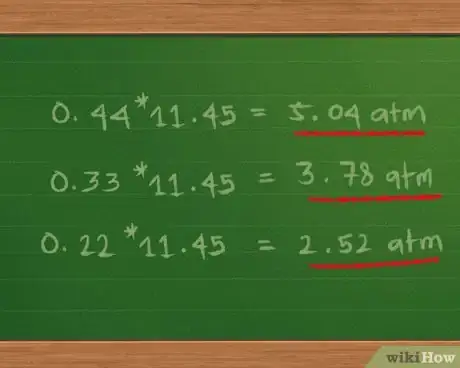 0.44*11.45 = 5.04 atm
0.33*11.45 = 3.78 atm
0.22*11.45 = 2.52 atm
wikiHow